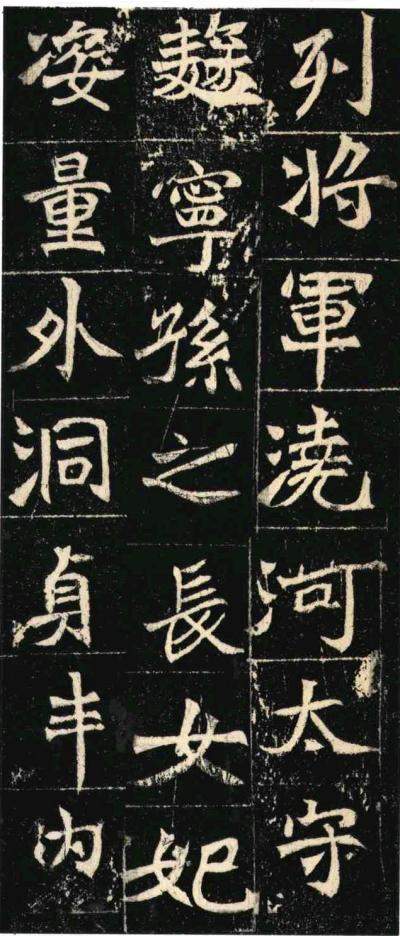 列將軍澆河太守
麴寧孫之長女妃
姿量外洞貞丰内